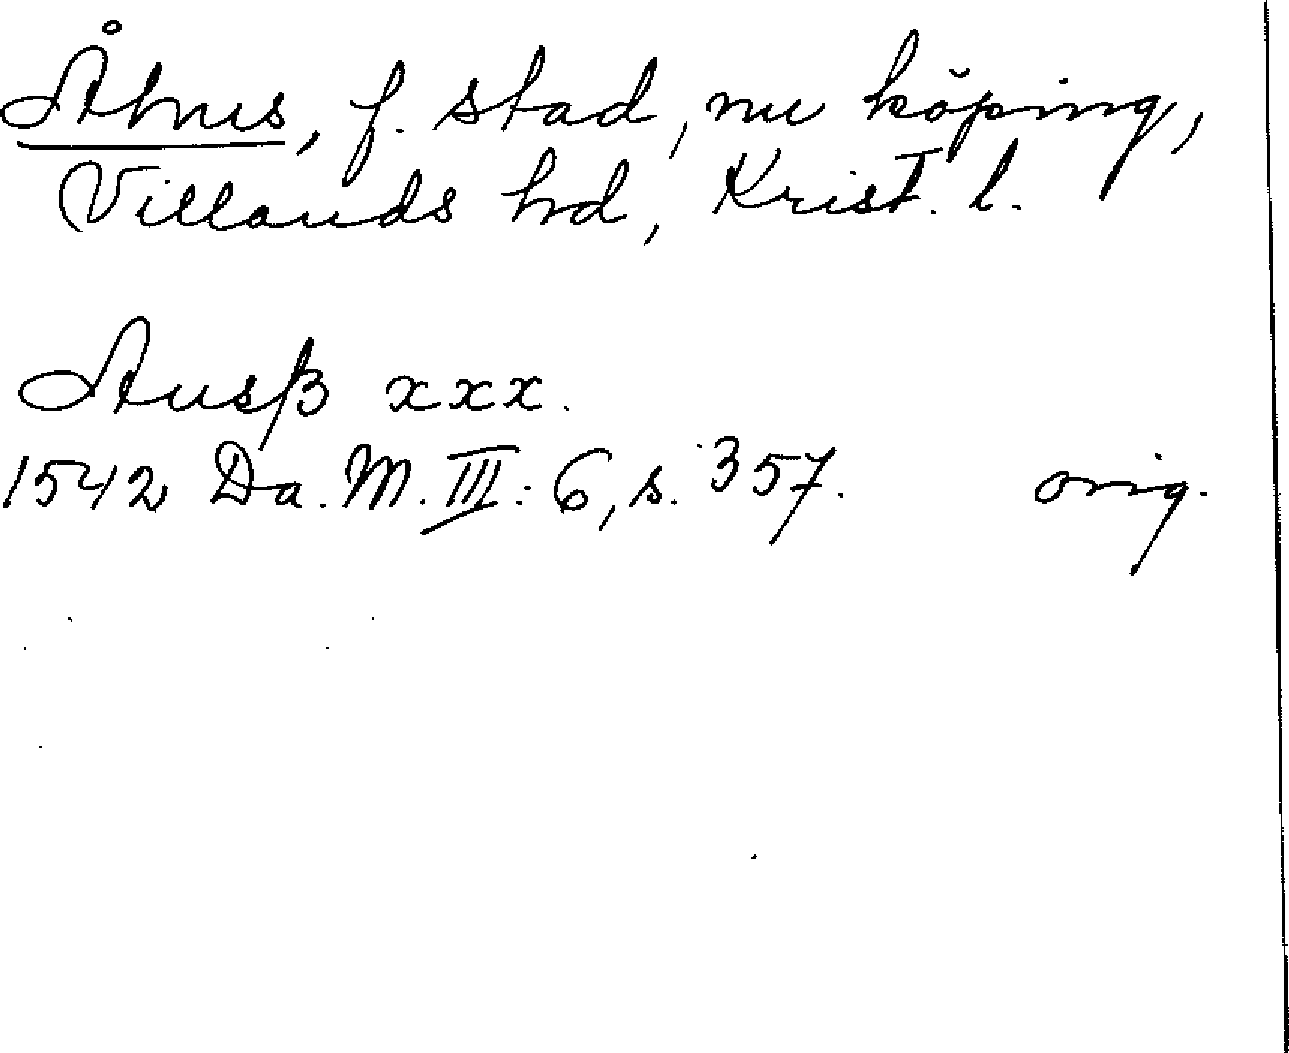 Åhus, f. stad, nu köping,
Villands hd, Krist. l.
Ausß xxx.
1542 Da. M. III: 6, s. 357. orig.